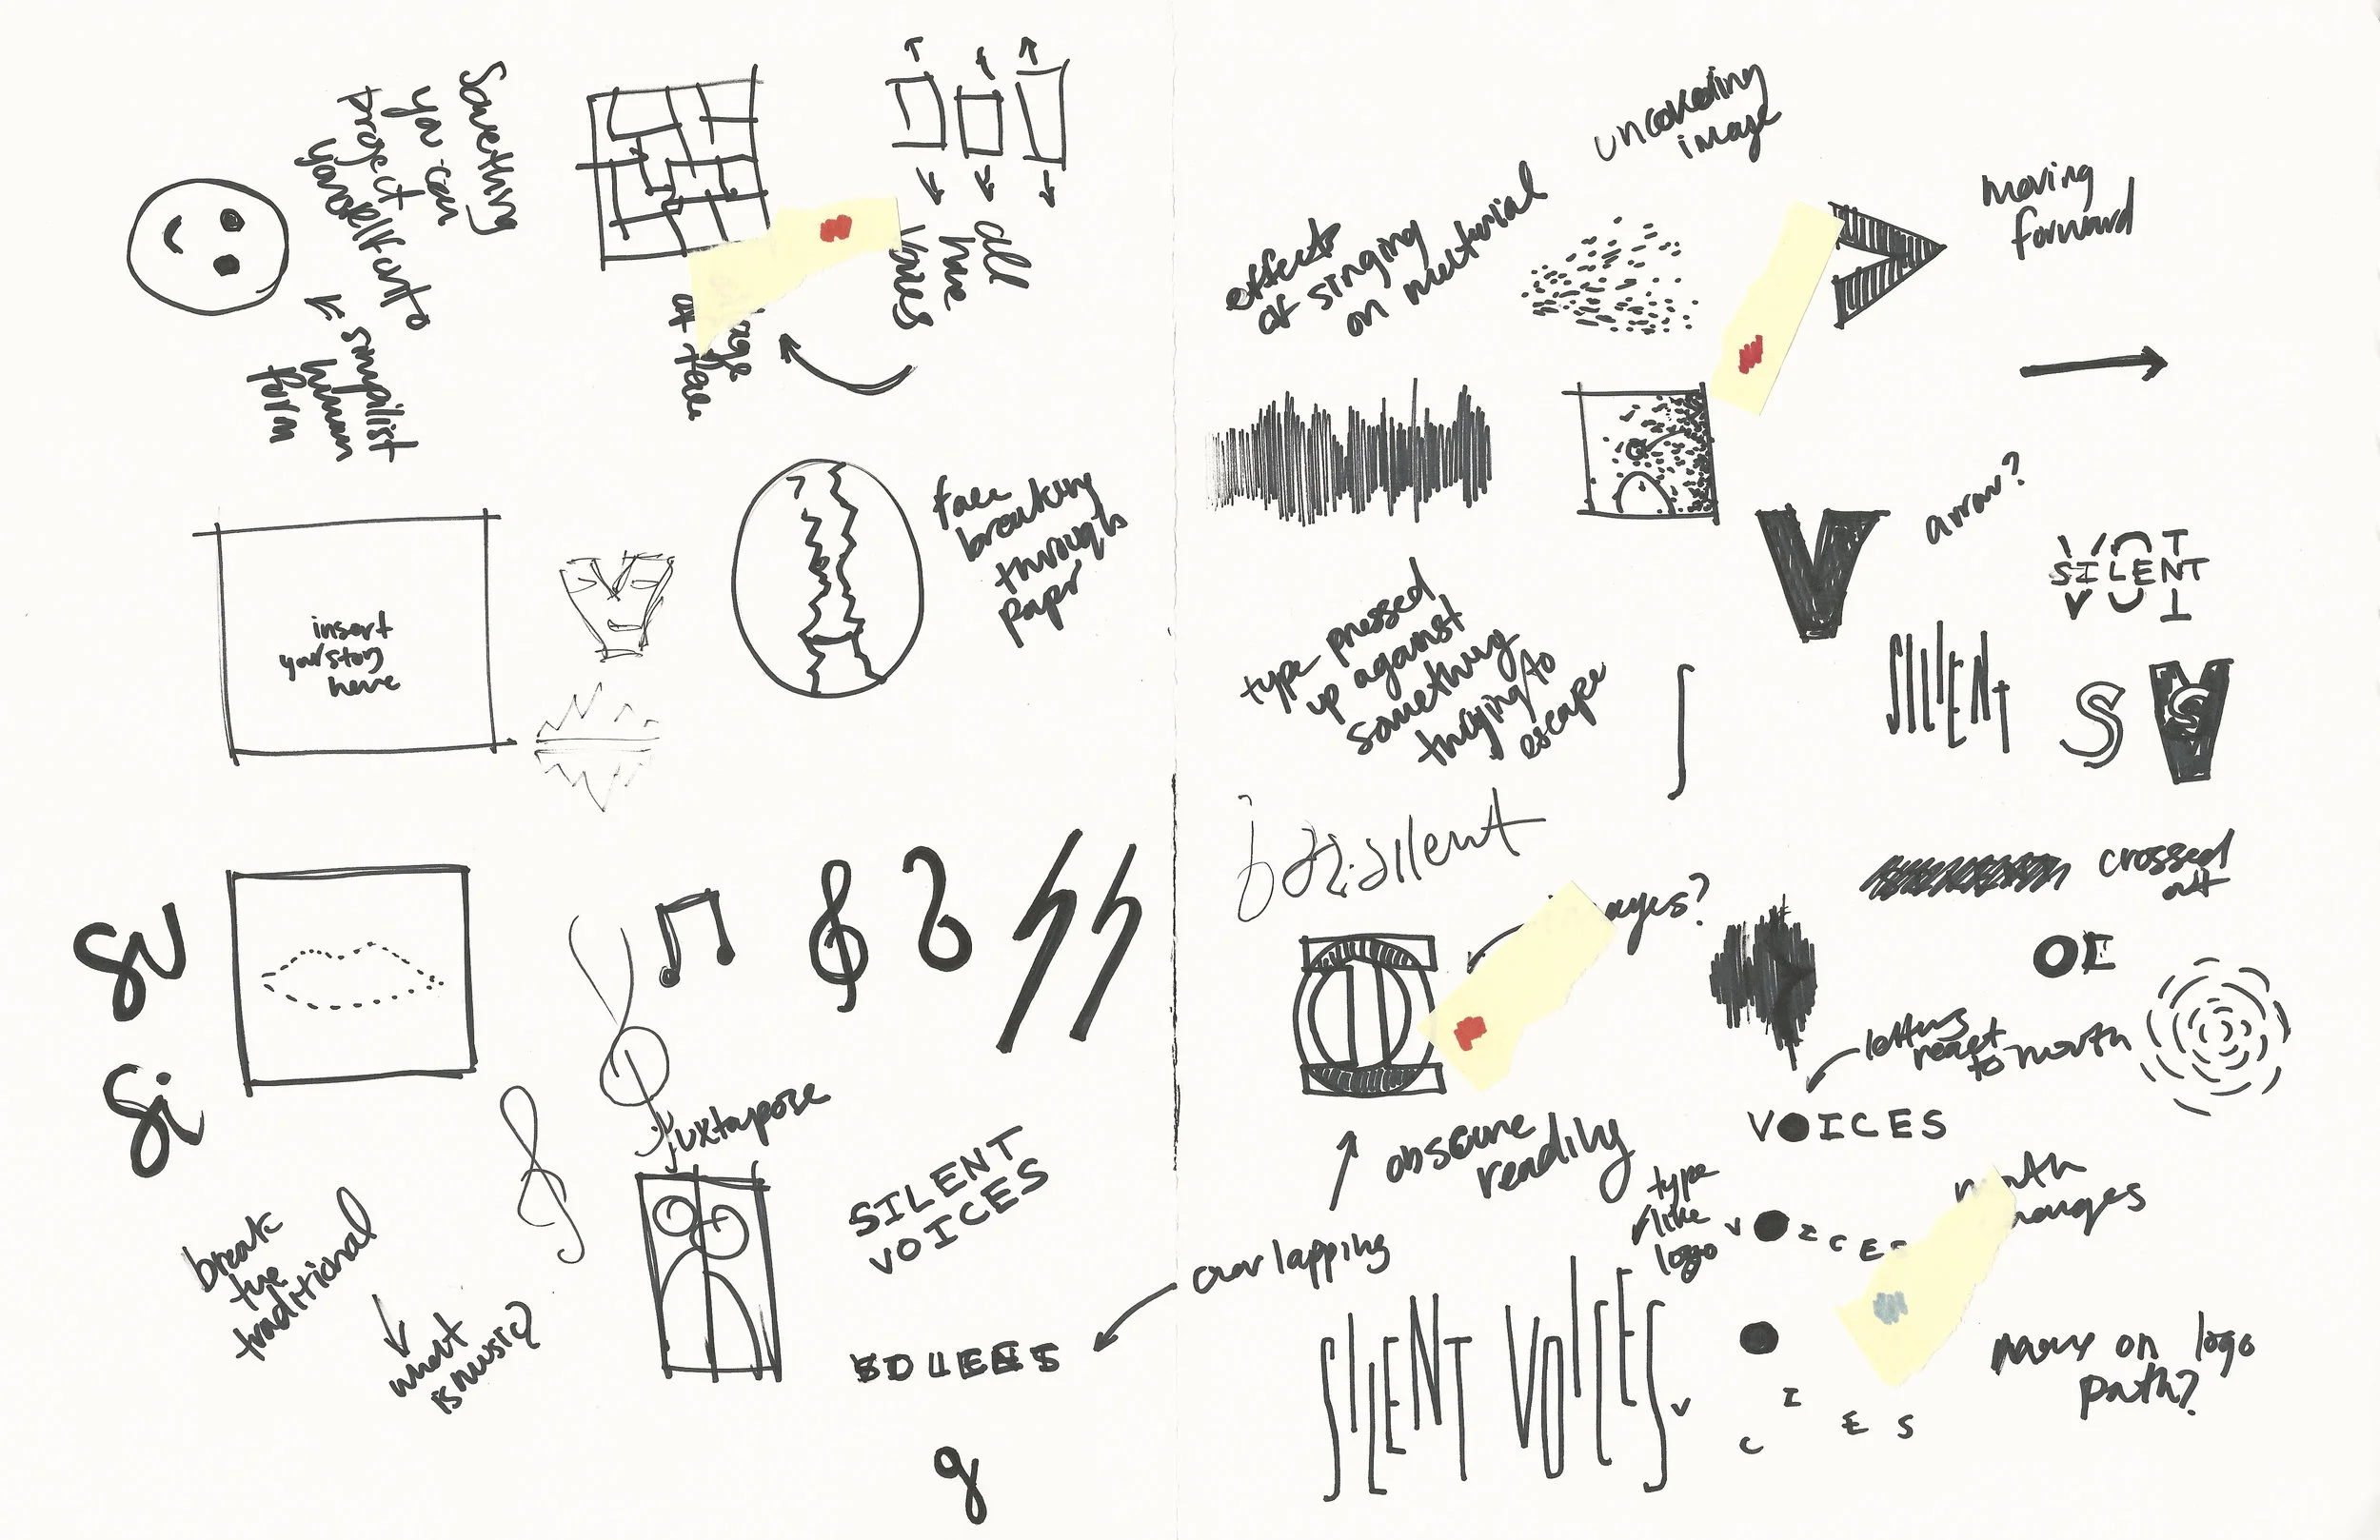 Something
you can
project
yourself onto
simplist
human
form
all
have
voices
of face
insert
your story
here
face
breaking
through
paper
SV
Si
juxtapose
break
the
traditional
what
is music?
SILENT
VOICES
g
effects
of singing
on material
uncovering
image
moving
forward
V
arrow?
type pressed
up against
something
trying to
escape
SILENT
SILENT
S
silent
crossed
out
OE
letters
react
to mouth
VOICES
obscure
reading
overlapping
type
like
logo
V I C E S
SILENT VOICES
V
I
C
E S
move on logo
path?